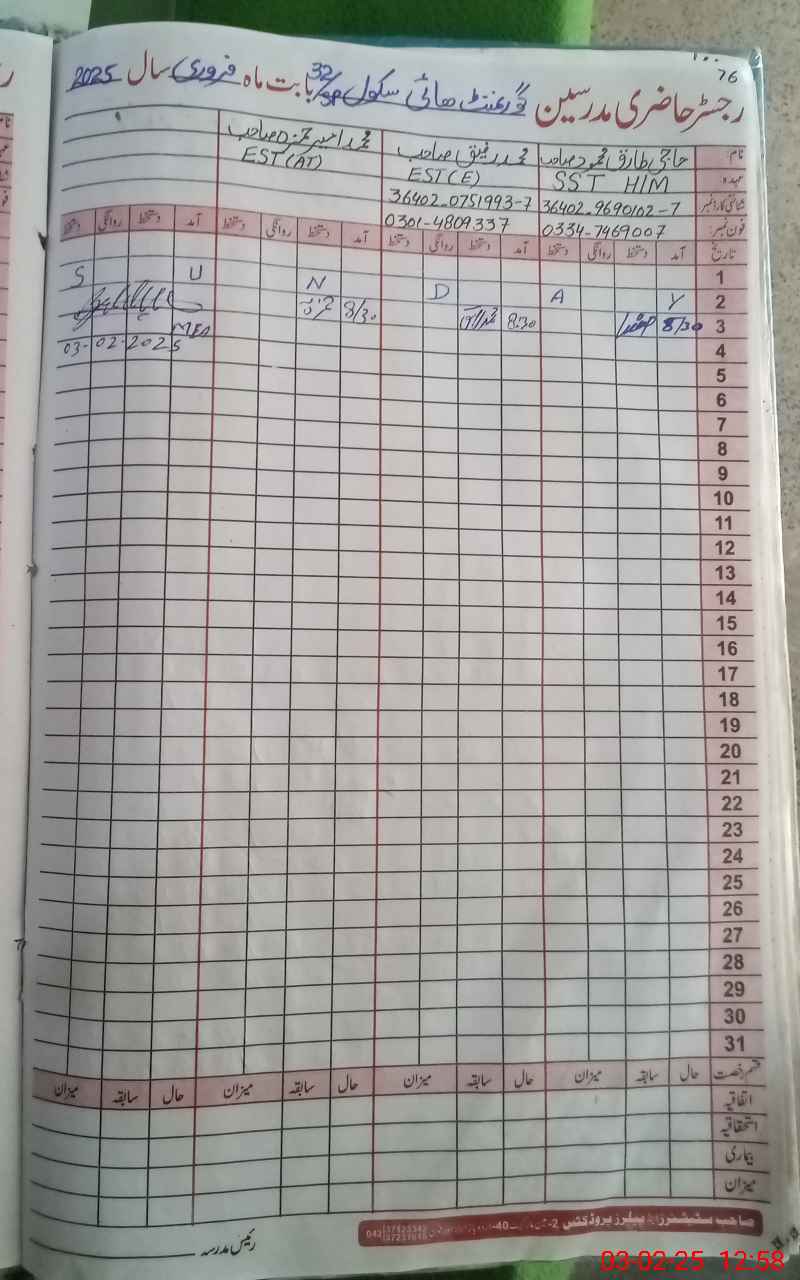 76
رجسٹر حاضری مدرسین گورنمنٹ ھائی سکول 32/SP بابت ماہ فروری سال 2025
نام حاجی طارق محمود صاحب محمد رفیق صاحب محمد امیر حمزہ صاحب
عہدہ SST HIM EST(E) EST(AT)
شناختی کارڈ نمبر 36402-9690102-7 36402-0751993-7
فون نمبر: 0334-7469007 0301-4809337
تاریخ آمد دستخط روانگی دستخط آمد دستخط روانگی دستخط آمد دستخط روانگی دستخط آمد دستخط روانگی دستخط
1 S U N D A Y
2
3 8/30 8:30 8/30
MEA
03-02-2025
4
5
6
7
8
9
10
11
12
13
14
15
16
17
18
19
20
21
22
23
24
25
26
27
28
29
30
31
قسم رخصت حال سابقہ میزان حال سابقہ میزان حال سابقہ میزان حال سابقہ میزان
اتفاقیہ
استحقاقیہ
بیماری
میزان
صاحب سٹیشنرز اینڈ پیپرز پروڈکٹس
رئیس مدرسہ
03-02-25 12:58